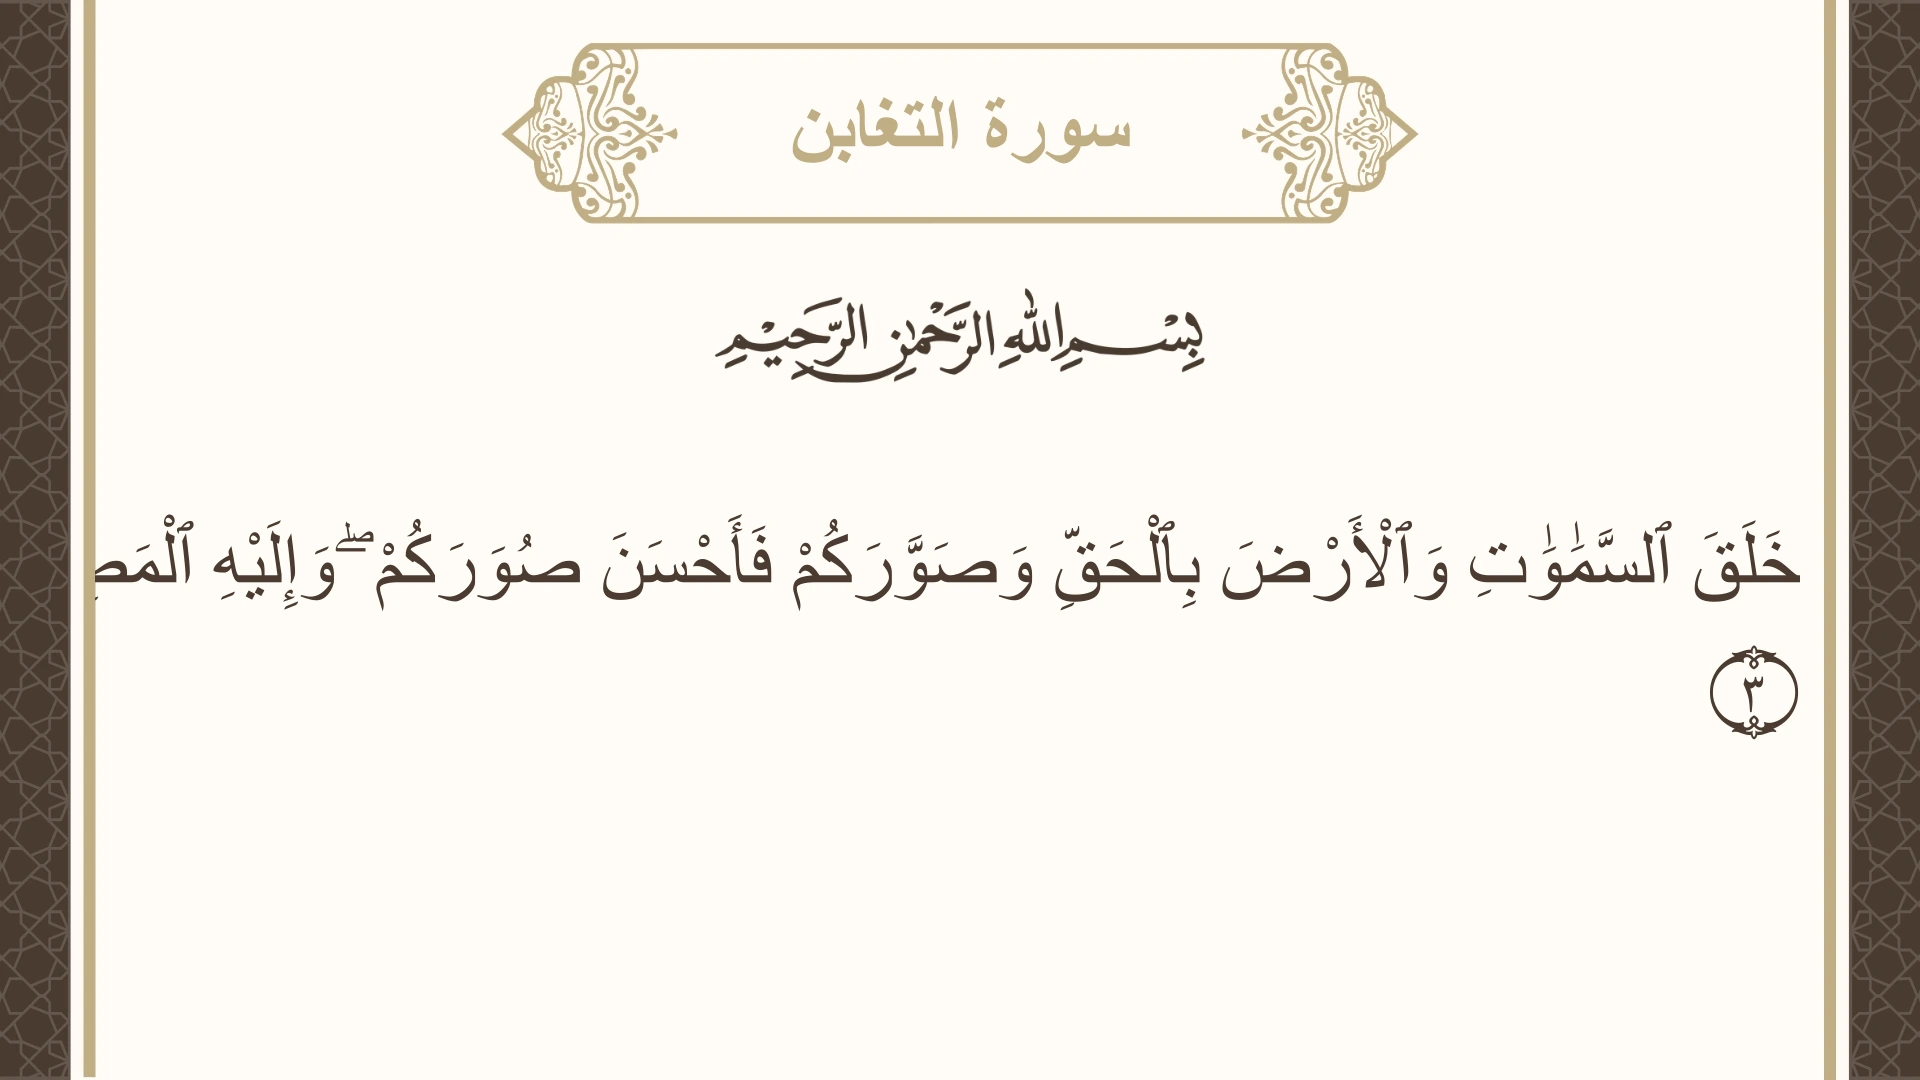 سورة التغابن
بِسْمِ اللهِ الرَّحْمٰنِ الرَّحِيْمِ
خَلَقَ ٱلسَّمَٰوَٰتِ وَٱلْأَرْضَ بِٱلْحَقِّ وَصَوَّرَكُمْ فَأَحْسَنَ صُوَرَكُمْ ۖ وَإِلَيْهِ
٣